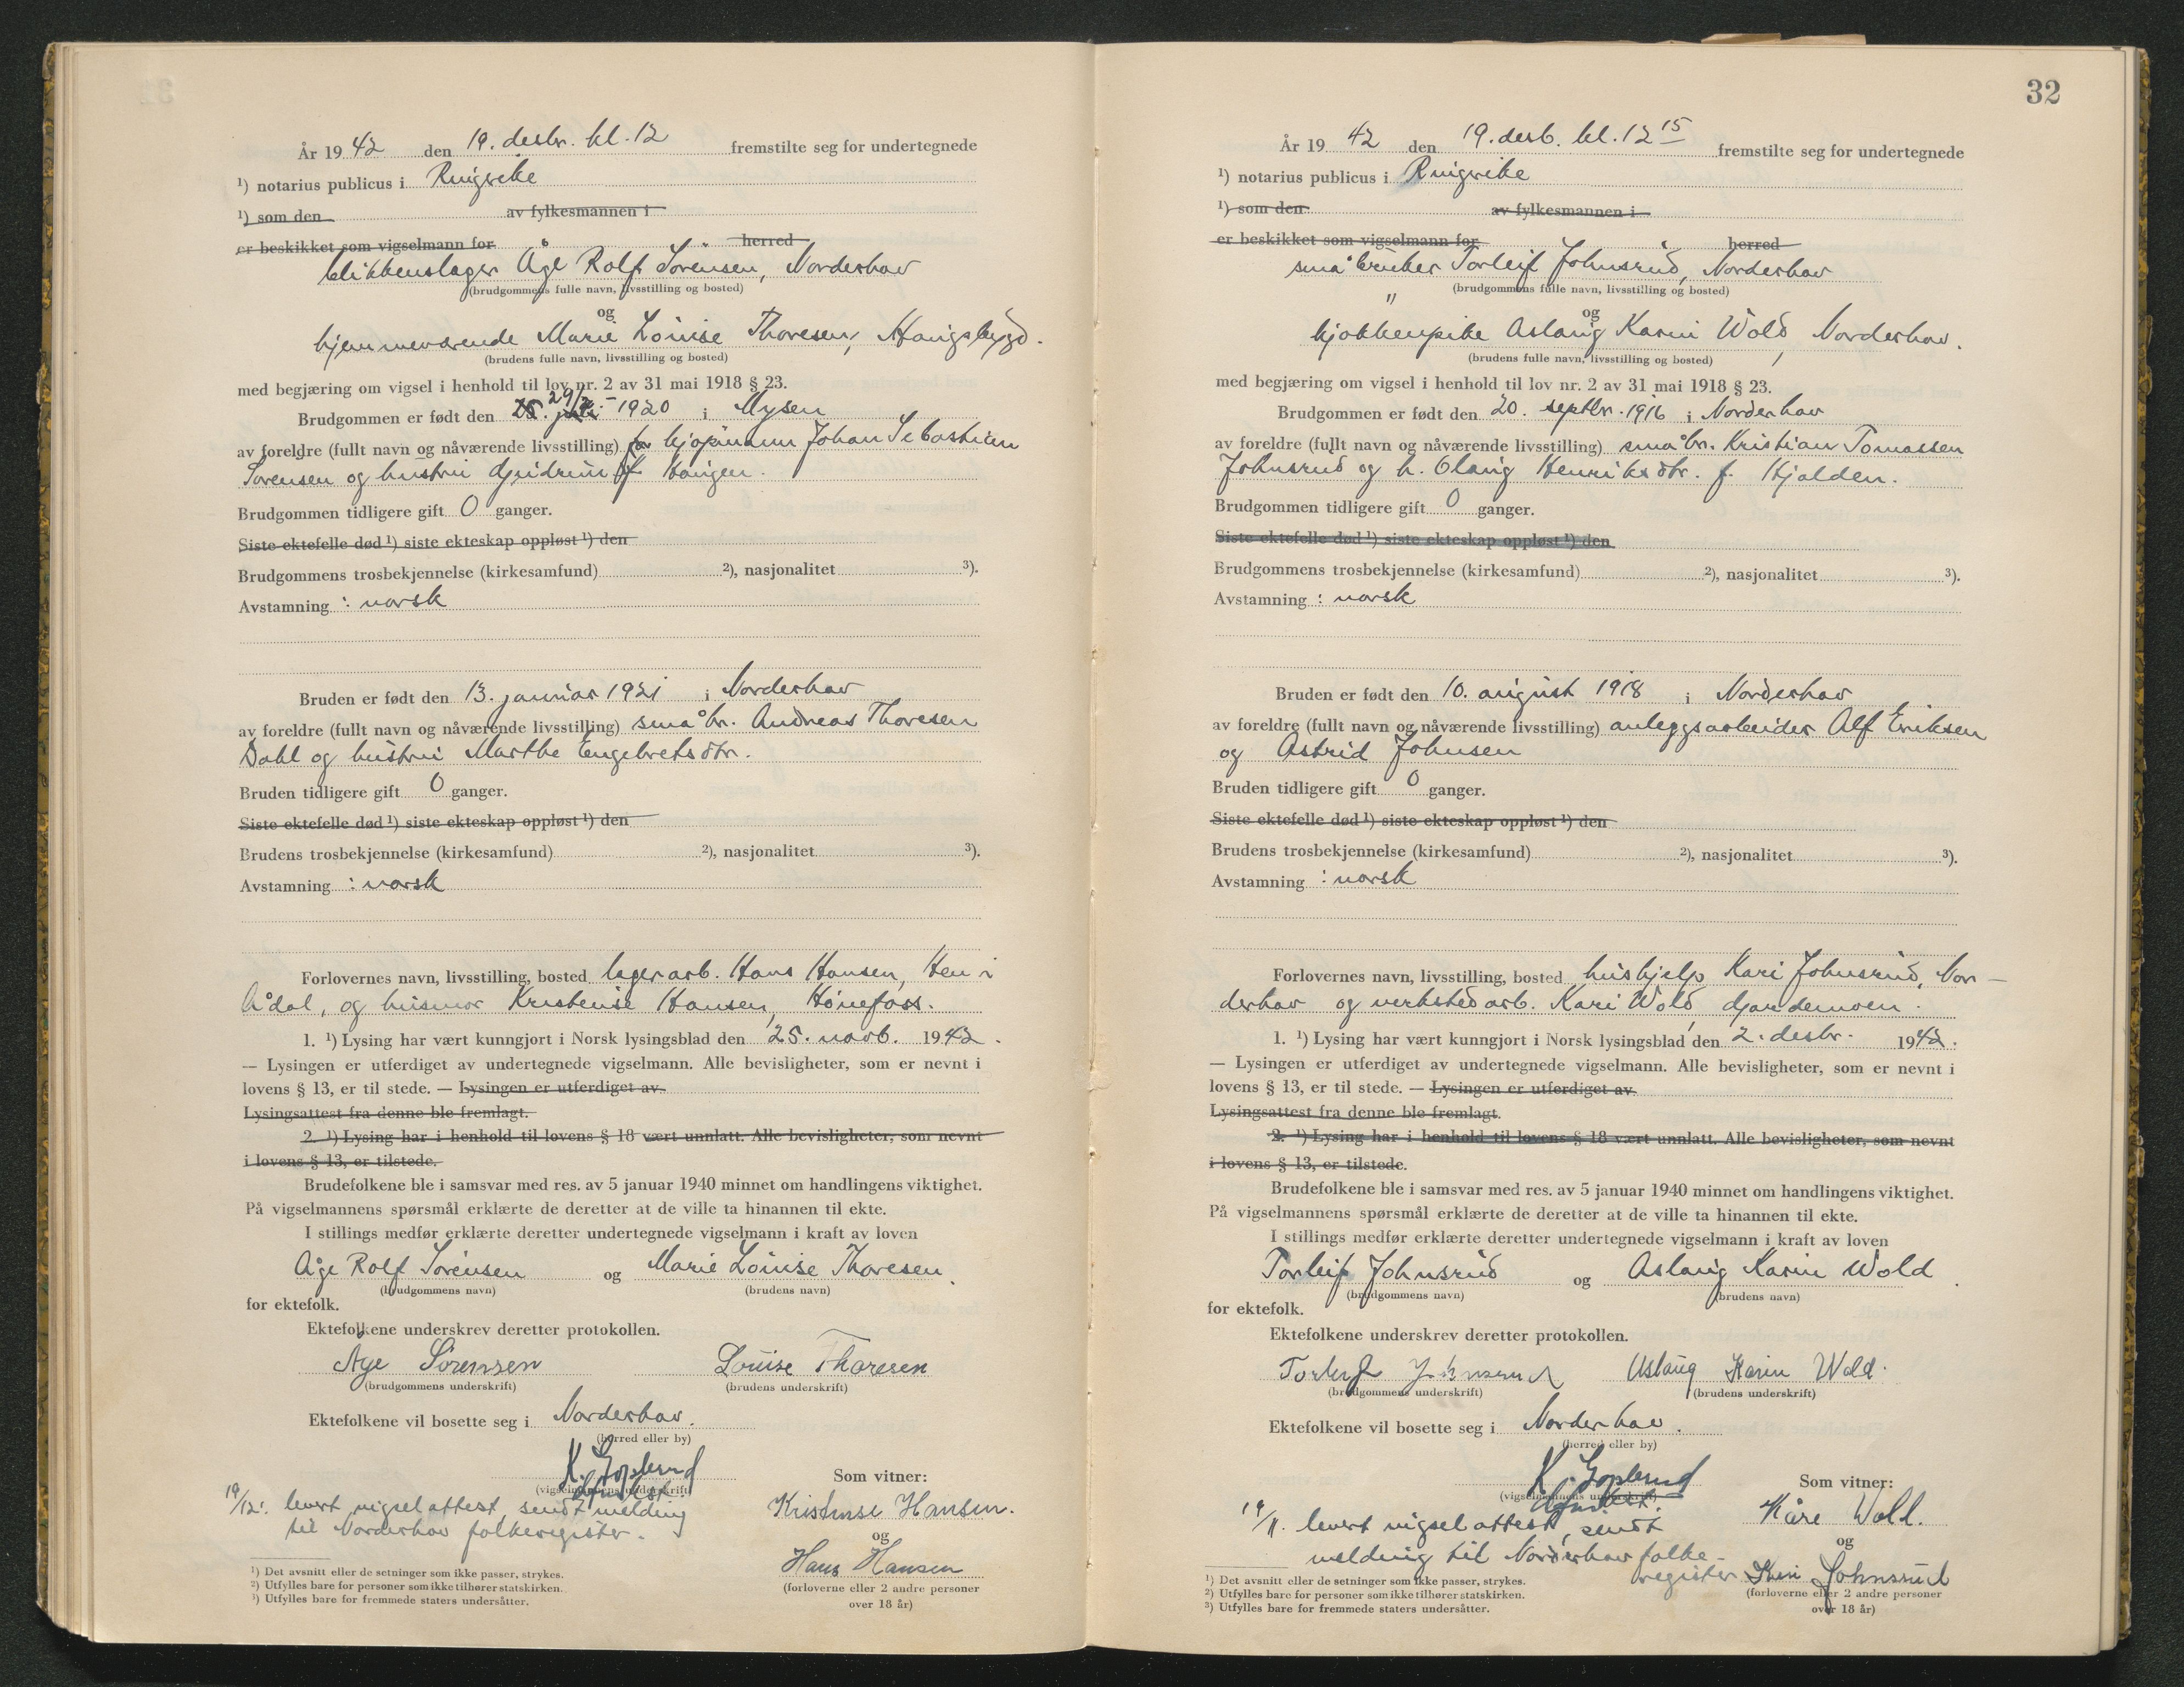 År 1942 den 19. desbr. kl. 12 fremstilte seg for undertegnede
¹) notarius publicus i Ringerike
¹) som den av fylkesmannen i
er beskikket som vigselmann for herred
blikkenslager Åge Rolf Sørensen, Norderhov
(brudgommens fulle navn, livsstilling og bosted)
og
hjemmeværende Marie Louise Thoresen, Haugsbygd.
(brudens fulle navn, livsstilling og bosted)
med begjæring om vigsel i henhold til lov nr. 2 av 31 mai 1918 § 23.
Brudgommen er født den 29/ 1920 i Mysen
av foreldre (fullt navn og nåværende livsstilling) kjøpmann Johan Sebastian
Sørensen og hustru Gudrun f. Haugen.
Brudgommen tidligere gift 0 ganger.
Siste ektefelle død ¹) siste ekteskap oppløst ¹) den
Brudgommens trosbekjennelse (kirkesamfund) ²), nasjonalitet ³).
Avstamning : norsk
Bruden er født den 13. januar 1921 i Norderhov
av foreldre (fullt navn og nåværende livsstilling) småbr. Andreas Thoresen
Dahl og hustru Marthe Engebretsdtr.
Bruden tidligere gift 0 ganger.
Siste ektefelle død ¹) siste ekteskap oppløst ¹) den
Brudens trosbekjennelse (kirkesamfund) ²), nasjonalitet ³).
Avstamning : norsk
Forlovernes navn, livsstilling, bosted lagerarb. Hans Hansen, Hen i
Ådal, og husmor Kristense Hansen, Hønefoss.
1. ¹) Lysing har vært kunngjort i Norsk lysingsblad den 25. novb. 1942.
— Lysingen er utferdiget av undertegnede vigselmann. Alle bevisligheter, som er nevnt i
lovens § 13, er til stede. — Lysingen er utferdiget av
Lysingsattest fra denne ble fremlagt.
2. ¹) Lysing har i henhold til lovens § 18 vært unnlatt. Alle bevisligheter, som nevnt
i lovens § 13, er tilstede.
Brudefolkene ble i samsvar med res. av 5 januar 1940 minnet om handlingens viktighet.
På vigselmannens spørsmål erklærte de deretter at de ville ta hinannen til ekte.
I stillings medfør erklærte deretter undertegnede vigselmann i kraft av loven
Åge Rolf Sørensen og Marie Louise Thoresen.
(brudgommens navn) (brudens navn)
for ektefolk.
Ektefolkene underskrev deretter protokollen.
Åge Sörensen Louise Thoresen
(brudgommens underskrift) (brudens underskrift)
Ektefolkene vil bosette seg i Norderhov.
(herred eller by)
K. Goplerud
(vigselmannens underskrift)
Som vitner:
19/12. levert vigselattest, sendt melding
til Norderhov folkeregister.
Kristense Hansen.
og
Hans Hansen
(forloverne eller 2 andre personer
over 18 år)
¹) Det avsnitt eller de setninger som ikke passer, strykes.
²) Utfylles bare for personer som ikke tilhører statskirken.
³) Utfylles bare for fremmede staters undersåtter.
32
År 1942 den 19. desb. kl. 12 15 fremstilte seg for undertegnede
¹) notarius publicus i Ringerike
¹) som den av fylkesmannen i
er beskikket som vigselmann for herred
småbruker Torleif Johnsrud, Norderhov
(brudgommens fulle navn, livsstilling og bosted)
"
og
kjøkkenpike Aslaug Karin Wold, Norderhov.
(brudens fulle navn, livsstilling og bosted)
med begjæring om vigsel i henhold til lov nr. 2 av 31 mai 1918 § 23.
Brudgommen er født den 20. septbr. 1916 i Norderhov
av foreldre (fullt navn og nåværende livsstilling) småbr. Kristian Tomassen
Johnsrud og h. Olaug Henriksdtr. f. Hjalden.
Brudgommen tidligere gift 0 ganger.
Siste ektefelle død ¹) siste ekteskap oppløst ¹) den
Brudgommens trosbekjennelse (kirkesamfund) ²), nasjonalitet ³).
Avstamning : norsk
Bruden er født den 10. august 1918 i Norderhov
av foreldre (fullt navn og nåværende livsstilling) anleggsarbeider Alf Eriksen
og Astrid Johnsen
Bruden tidligere gift 0 ganger.
Siste ektefelle død ¹) siste ekteskap oppløst ¹) den
Brudens trosbekjennelse (kirkesamfund) ²), nasjonalitet ³).
Avstamning : norsk
Forlovernes navn, livsstilling, bosted hushjelp Kari Johnsrud, Nor-
derhov og verkstedarb. Kåre Wold, Gardemoen.
1. ¹) Lysing har vært kunngjort i Norsk lysingsblad den 2. desbr. 1942.
— Lysingen er utferdiget av undertegnede vigselmann. Alle bevisligheter, som er nevnt i
lovens § 13, er til stede. — Lysingen er utferdiget av
Lysingsattest fra denne ble fremlagt.
2. ¹) Lysing har i henhold til lovens § 18 vært unnlatt. Alle bevisligheter, som nevnt
i lovens § 13, er tilstede.
Brudefolkene ble i samsvar med res. av 5 januar 1940 minnet om handlingens viktighet.
På vigselmannens spørsmål erklærte de deretter at de ville ta hinannen til ekte.
I stillings medfør erklærte deretter undertegnede vigselmann i kraft av loven
Torleif Johnsrud og Aslaug Karin Wold.
(brudgommens navn) (brudens navn)
for ektefolk.
Ektefolkene underskrev deretter protokollen.
Torleif Johnsrud Aslaug Karin Wold.
(brudgommens underskrift) (brudens underskrift)
Ektefolkene vil bosette seg i Norderhov.
(herred eller by)
K. Goplerud
(vigselmannens underskrift)
Som vitner:
19/11. levert vigselattest, sendt
meldning til Norderhov folke-
register
Kåre Wold.
og
Kari Johnsrud
(forloverne eller 2 andre personer
over 18 år)
¹) Det avsnitt eller de setninger som ikke passer, strykes.
²) Utfylles bare for personer som ikke tilhører statskirken.
³) Utfylles bare for fremmede staters undersåtter.